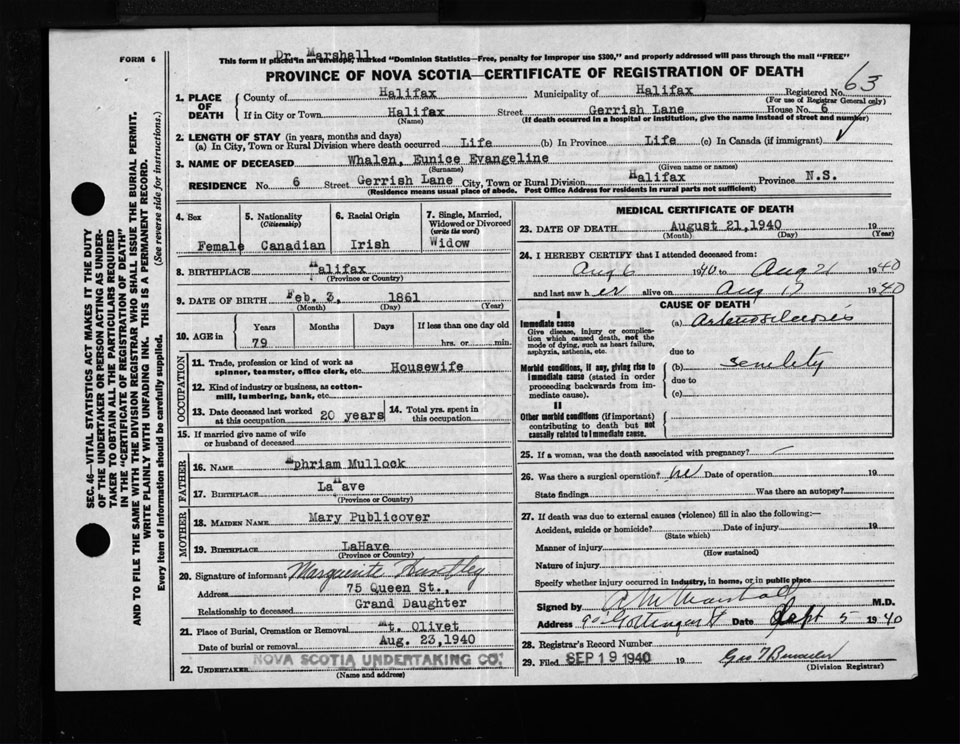 FORM 6
Dr. Marshall
This form if placed in an envelope, marked "Dominion Statistics—Free, penalty for improper use $300," and properly addressed will pass through the mail "FREE"
PROVINCE OF NOVA SCOTIA—CERTIFICATE OF REGISTRATION OF DEATH
63
1. PLACE OF DEATH County of Halifax Municipality of Halifax Registered No.
(For use of Registrar General only)
If in City or Town Halifax Street Gerrish Lane House No. 6
(Name) (If death occurred in a hospital or institution, give the name instead of street and number)
2. LENGTH OF STAY (in years, months and days)
(a) In City, Town or Rural Division where death occurred Life (b) In Province Life (c) In Canada (if immigrant)
3. NAME OF DECEASED Whalen, Eunice Evangeline
(Surname) (Given name or names)
RESIDENCE No. 6 Street Gerrish Lane City, Town or Rural Division Halifax Province N.S.
(Residence means usual place of abode. Post Office Address for residents in rural parts not sufficient)
4. Sex Female
5. Nationality (Citizenship) Canadian
6. Racial Origin Irish
7. Single, Married, Widowed or Divorced (write the word) Widow
8. BIRTHPLACE Halifax
(Province or Country)
9. DATE OF BIRTH Feb. 3, 1861
(Month) (Day) (Year)
10. AGE in Years Months Days If less than one day old
79 hrs. or min.
OCCUPATION
11. Trade, profession or kind of work as spinner, teamster, office clerk, etc. Housewife
12. Kind of industry or business, as cotton-mill, lumbering, bank, etc.
13. Date deceased last worked at this occupation 20 years
14. Total yrs. spent in this occupation
15. If married give name of wife or husband of deceased
FATHER
16. NAME Mullock
17. BIRTHPLACE LaHave
(Province or Country)
MOTHER
18. MAIDEN NAME Mary Publicover
19. BIRTHPLACE LaHave
(Province or Country)
20. Signature of informant Marguerite Huntley
Address 75 Queen St.,
Relationship to deceased Grand Daughter
21. Place of Burial, Cremation or Removal Mt. Olivet
Date of burial or removal Aug. 23,1940
22. UNDERTAKER NOVA SCOTIA UNDERTAKING CO.
(Name and address)
MEDICAL CERTIFICATE OF DEATH
23. DATE OF DEATH August 21,1940 19
(Month) (Day) (Year)
24. I HEREBY CERTIFY that I attended deceased from:
Aug 6 1940 to Aug 21 1940
and last saw h er alive on Aug 17 1940
CAUSE OF DEATH
I
Immediate cause
Give disease, injury or complication which caused death, not the mode of dying, such as heart failure, asphyxia, asthenia, etc.
(a) Arteriosclerosis
due to
Morbid conditions, if any, giving rise to immediate cause (stated in order proceeding backwards from immediate cause).
(b) senility
due to
(c)
II
Other morbid conditions (if important) contributing to death but not causally related to immediate cause.
25. If a woman, was the death associated with pregnancy?
26. Was there a surgical operation? no Date of operation 19
State findings Was there an autopsy?
27. If death was due to external causes (violence) fill in also the following:—
Accident, suicide or homicide? Date of injury 19
(State which)
Manner of injury
(How sustained)
Nature of injury
Specify whether injury occurred in industry, in home, or in public place
Signed by M Marshall M.D.
Address 90 Gottingen St Date Sept 5 1940
28. Registrar's Record Number
29. Filed SEP 19 1940 19
(Division Registrar)
SEC. 46—VITAL STATISTICS ACT MAKES IT THE DUTY
OF THE UNDERTAKER OR PERSON ACTING AS UNDER-
TAKER TO OBTAIN ALL THE PARTICULARS REQUIRED
IN THE "CERTIFICATE OF REGISTRATION OF DEATH"
AND TO FILE THE SAME WITH THE DIVISION REGISTRAR WHO SHALL ISSUE THE BURIAL PERMIT.
WRITE PLAINLY WITH UNFADING INK. THIS IS A PERMANENT RECORD.
Every item of information should be carefully supplied. (See reverse side for instructions.)